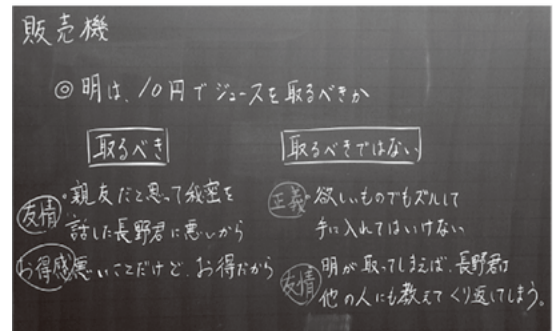 販売機
◎明は、10円でジュースを取るべきか
取るべき
友情
・親友だと思って秘密を
話した長野君に悪いから
お得感
悪いことだけど、お得だから
取るべきではない
正義
・欲しいものでもズルして
手に入れてはいけない
友情
明が取ってしまえば、長野君は
他の人にも教えてくり返してしまう。